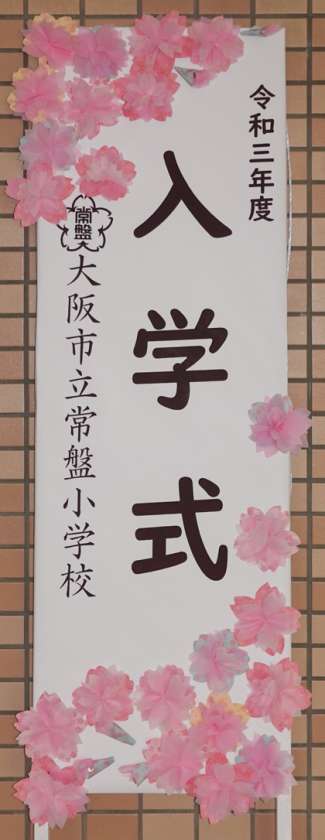 令和三年度
入学式
常盤
大阪市立常盤小学校